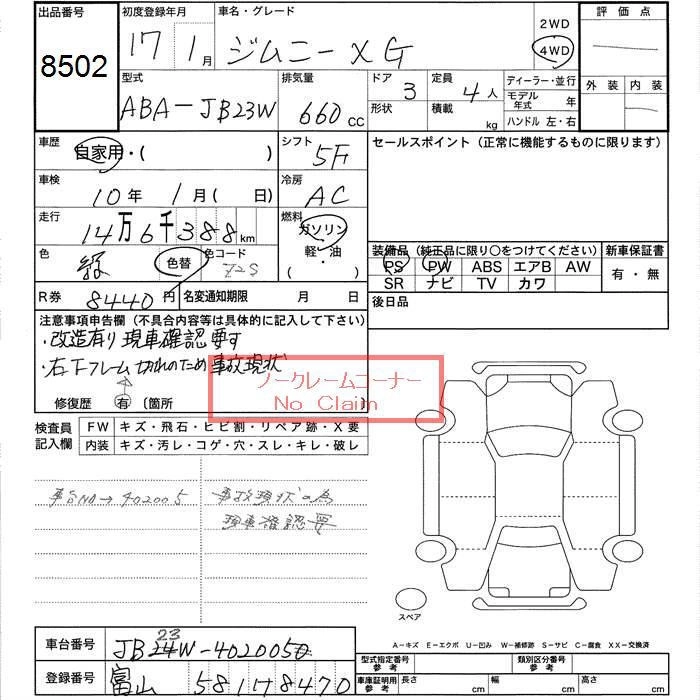 出品番号 初度登録年月 車名・グレード 評価点
8502 17年 1月 ジムニー XG 2WD 4WD
外装 内装
型式 排気量 ドア 定員 ディーラー・並行
ABA-JB23W 660cc 3 4人 モデル年式 年
形状 積載 kg ハンドル 左・右
車歴 自家用・( ) シフト 5F セールスポイント(正常に機能するものに限ります)
車検 10年 1月( 日) 冷房 AC
走行 14万6千388km 燃料 ガソリン 軽・油 ・( )
色 緑 色替 色コード Z2S
装備品(純正品に限り○をつけてください) 新車保証書
PS PW ABS エアB AW 有・無
SR ナビ TV カワ
R券 8440円 名変通知期限 月 日 後日品
注意事項申告欄(不具合内容等は具体的に記入して下さい)
・改造有り現車確認要す
・右下フレーム切れのため事故現状
ノークレームコーナー
No Claim
修復歴 有 (箇所 )
検査員記入欄 FW キズ・飛石・ヒビ割・リペア跡・X要
内装 キズ・汚レ・コゲ・穴・スレ・キレ・破レ
車台NO→402005
事故現状の為
現車確認要
スペア
A-キズ E-エクボ U-凹み W-補修跡 S-サビ C-腐食 XX-交換済
車台番号 JB23W-4020050
登録番号 富山 581 8470
型式指定番号 参考 類別区分番号 参考
車庫証明用 参考 長さ cm 幅 cm 高さ cm